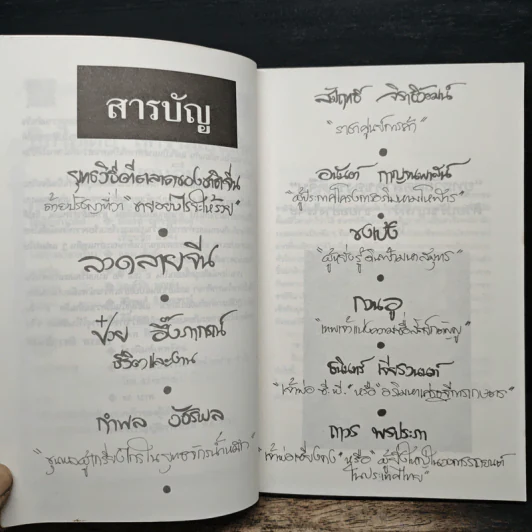 สารบัญ
ยุทธวิธีตีตลาดของชาติจีน
ด้วยปรัชญาที่ว่า "ขายอย่างไรจะให้รวย"
ลวดลายจีน
ป๋วย อึ๊งภากรณ์
ชีวิตและงาน
กำพล วัชรพล
"ขุนพลผู้เกรียงไกรในยุทธจักรน้ำหมึก"
สัมฤทธิ์ จิราธิวัฒน์
"ราชาศูนย์การค้า"
อนันต์ กาญจนพาสน์
ซงเป๋ง
กวนอู
"เทพเจ้าแห่งความซื่อสัตย์กตัญญู"
ธนินทร์ เจียรวนนท์
"เจ้าพ่อ ซี.พี." หรือ "อภิมหาเศรษฐีการเกษตร"
ถาวร พรประภา
"หรือ" ผู้ยิ่งใหญ่ในวงการรถยนต์
ในประเทศไทย"